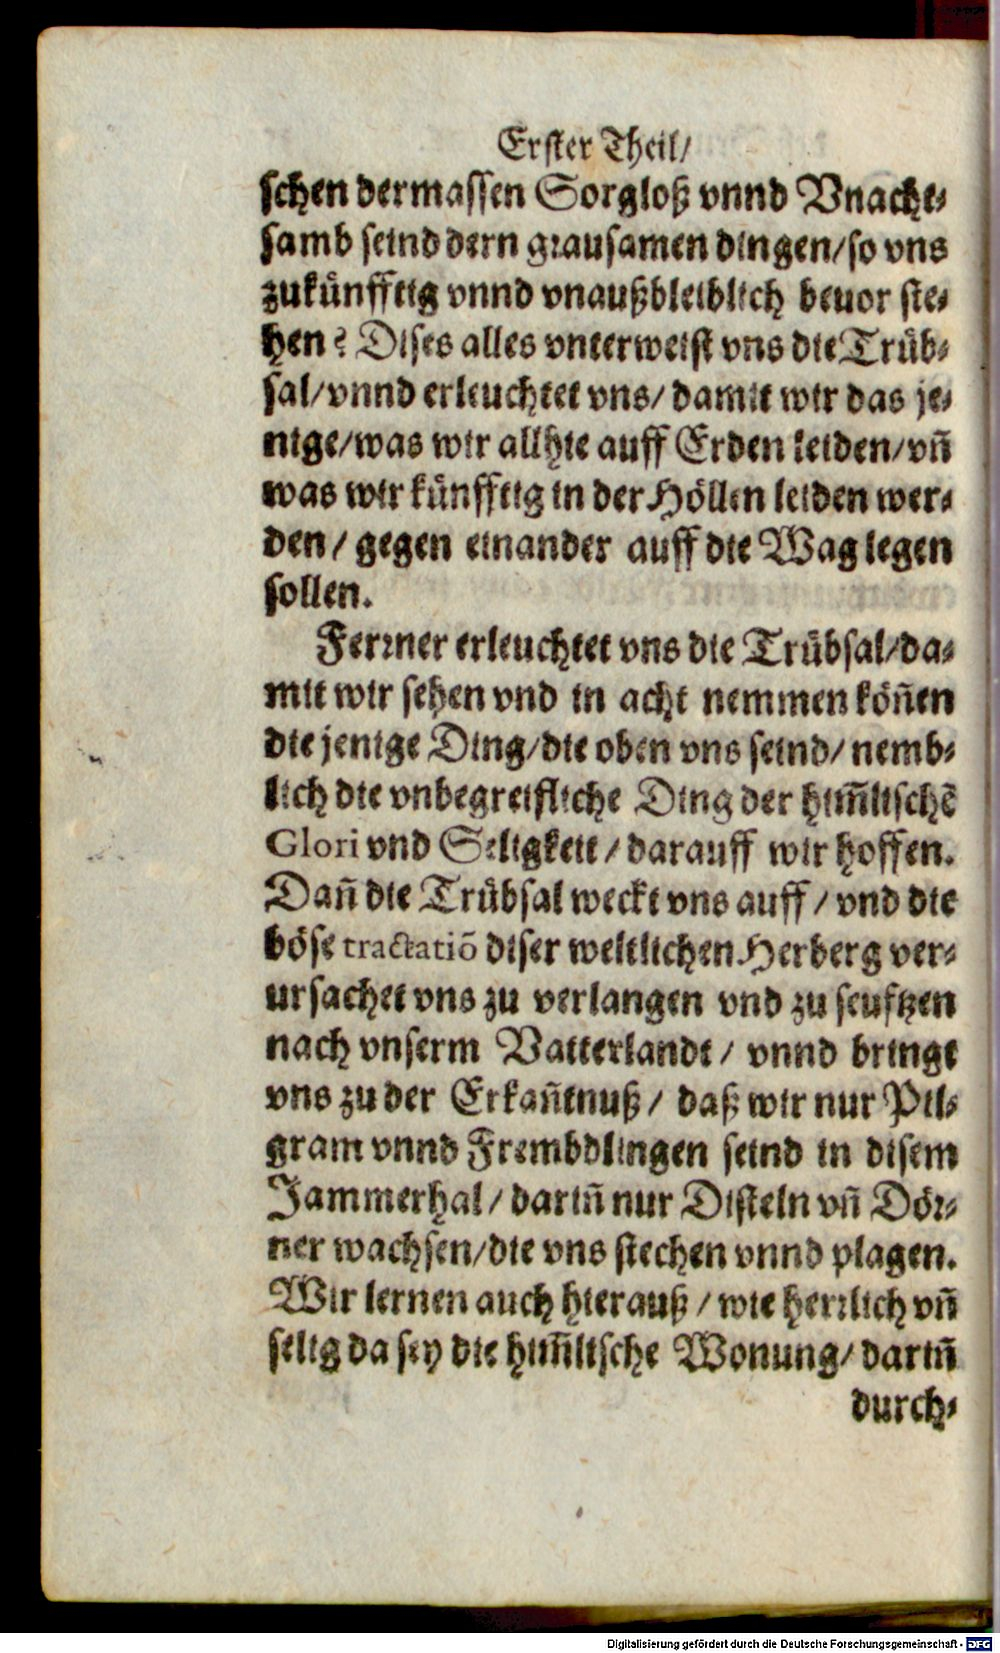 Erster Theil/
schen dermassen Sorgloß vnnd Vnacht-
samb seind dern grausamen dingen/so vns
zukünfftig vnnd vnaußbleiblich beuor ste-
hen? Dises alles vnterweist vns die Trüb-
sal/vnnd erleuchtet vns/ damit wir das je-
nige/was wir allhie auff Erden leiden/vñ
was wir künfftig in der Höllen leiden wer-
den/ gegen einander auff die Wag legen
sollen.
Ferrner erleuchtet vns die Trübsal/da-
mit wir sehen vnd in acht nemmen köñen
die jenige Ding/die oben vns seind/ nemb-
lich die vnbegreifliche Ding der him̃lischẽ
Glori vnd Seligkeit/ darauff wir hoffen.
Dañ die Trübsal weckt vns auff/ vnd die
böse tractatiõ diser weltlichen Herberg ver-
ursachet vns zu verlangen vnd zu seuftzen
nach vnserm Vatterlandt/ vnnd bringt
vns zu der Erkañtnuß/ daß wir nur Pil-
gram vnnd Frembdlingen seind in disem
Jammerhal/ dariñ nur Disteln vñ Dör-
ner wachsen/die vns stechen vnnd plagen.
Wir lernen auch hierauß/ wie herrlich vñ
selig da sey die him̃lische Wonung/ dariñ
durch-
Digitalisierung gefördert durch die Deutsche Forschungsgemeinschaft - DFG